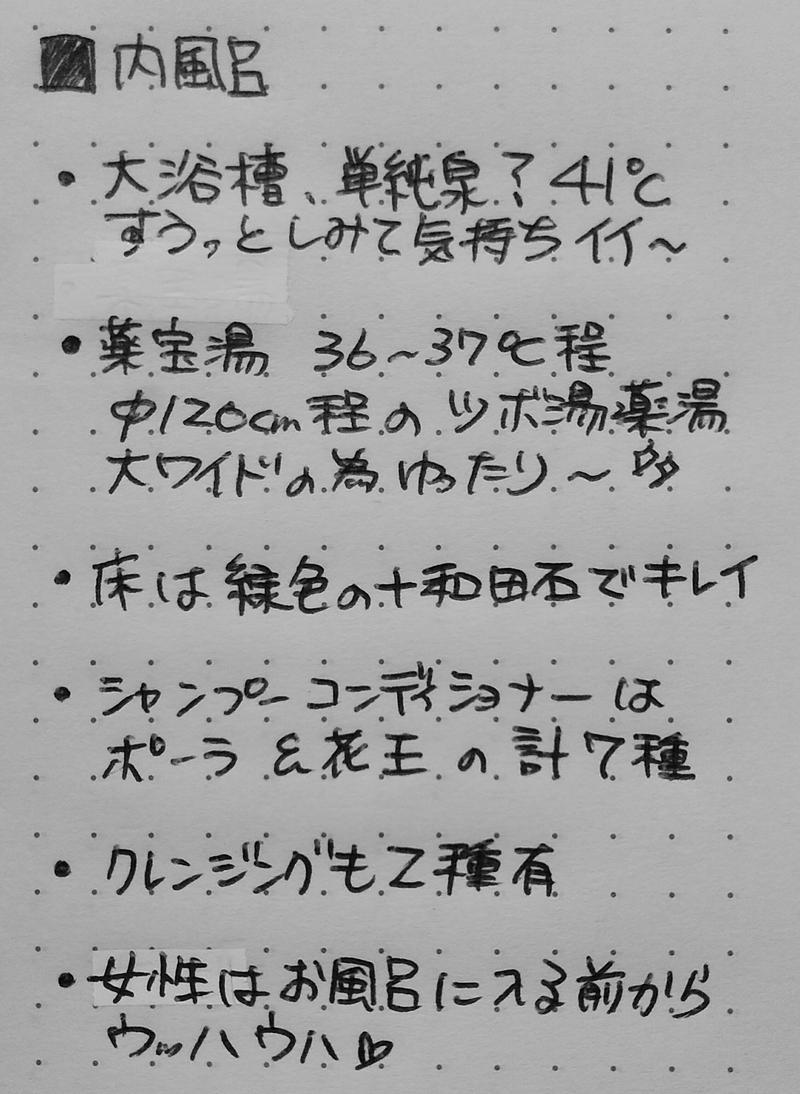 ■内風呂
・大浴槽、単純泉？41℃
すうっとしみて気持ちイイ〜
・薬宝湯 36〜37℃程
φ120cm程のツボ湯薬湯
大ワイドの為ゆったり〜
・床は緑色の十和田石でキレイ
・シャンプーコンディショナーは
ポーラ&花王の計7種
・クレンジングも2種有
・女性はお風呂に入る前から
ウッハウハ♡